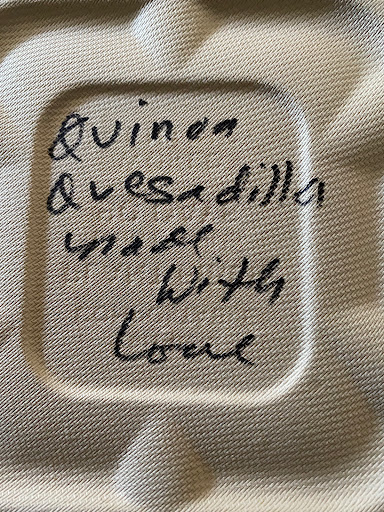 Quinoa
Quesadilla
made
With
Love